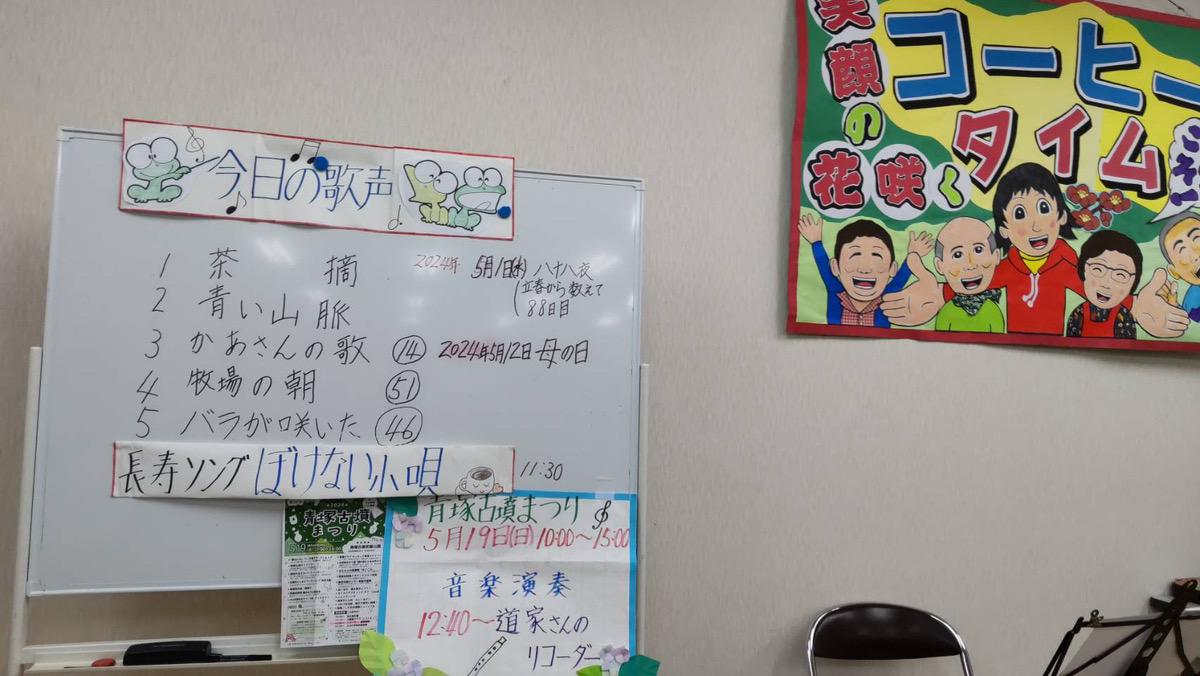 今日の歌声
1 茶 摘 2024年 5月1日(水) 八十八夜
(立春から数えて
88日目
2 青い山脈
3 かあさんの歌 ⑭ 2024年5月12日 母の日
4 牧場の朝 ㊿+1
5 バラが咲いた ㊻
長寿ソング ぼけない小唄 11:30
青塚古墳
まつり
5.19
青塚古墳まつり
5月19日(日)10:00〜15:00
音楽演奏
12:40〜道家さんの
リコーダー
笑顔の
花咲く
コーヒー
タイム